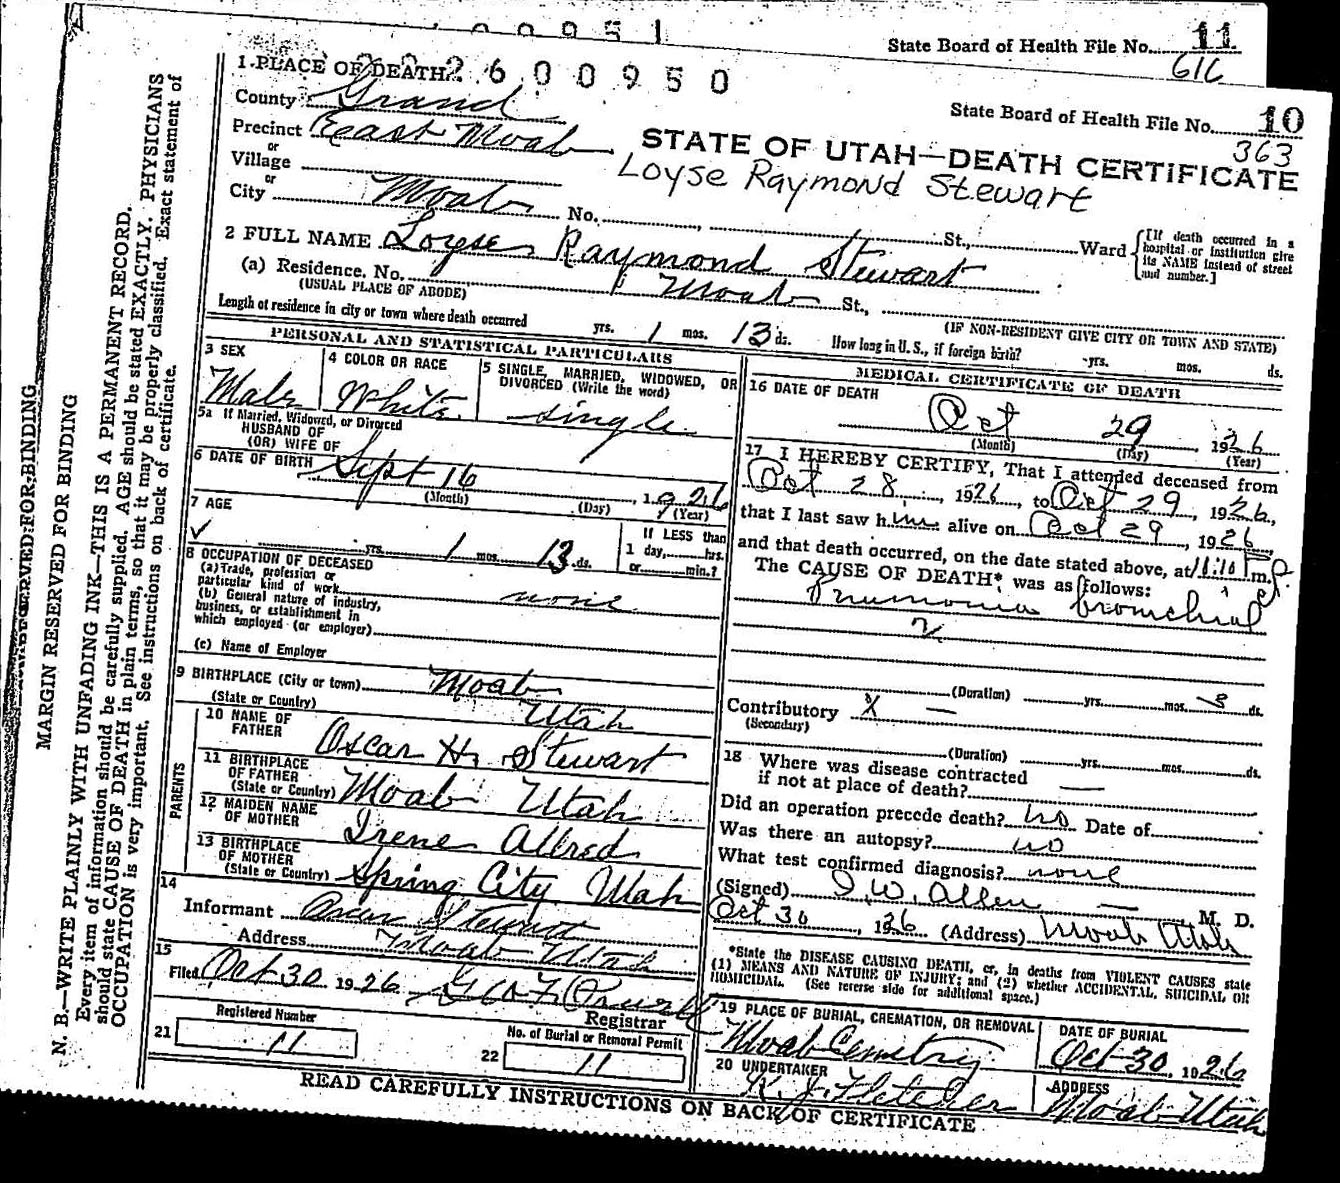 State Board of Health File No. 11
616
2600950
State Board of Health File No. 10
363
STATE OF UTAH—DEATH CERTIFICATE
Loyse Raymond Stewart
1 PLACE OF DEATH
County Grand
Precinct East Moab
or
Village
or
City Moab No. St., Ward
[If death occurred in a hospital or institution give its NAME instead of street and number.]
2 FULL NAME Loyse Raymond Stewart
(a) Residence, No. Moab St.,
(USUAL PLACE OF ABODE)
(IF NON-RESIDENT GIVE CITY OR TOWN AND STATE)
Length of residence in city or town where death occurred yrs. 1 mos. 13 ds. How long in U. S., if foreign birth? yrs. mos. ds.
PERSONAL AND STATISTICAL PARTICULARS
3 SEX
Male
4 COLOR OR RACE
White
5 SINGLE, MARRIED, WIDOWED, OR DIVORCED (Write the word)
single
5a If Married, Widowed, or Divorced
HUSBAND OF
(OR) WIFE OF
6 DATE OF BIRTH Sept 16, 1926
(Month) (Day) (Year)
7 AGE
yrs. 1 mos. 13 ds.
If LESS than
1 day, hrs.
or min.?
8 OCCUPATION OF DECEASED
(a) Trade, profession or
particular kind of work none
(b) General nature of industry,
business, or establishment in
which employed (or employer)
(c) Name of Employer
9 BIRTHPLACE (City or town) Moab
(State or Country) Utah
PARENTS
10 NAME OF
FATHER Oscar H. Stewart
11 BIRTHPLACE
OF FATHER
(State or Country) Moab Utah
12 MAIDEN NAME
OF MOTHER Irene Allred
13 BIRTHPLACE
OF MOTHER
(State or Country) Spring City Utah
14
Informant Oscar Stewart
Address Moab Utah
15
Filed Oct 30 1926
Registrar
21
Registered Number
11
22
No. of Burial or Removal Permit
11
MEDICAL CERTIFICATE OF DEATH
16 DATE OF DEATH
Oct 29 1926
(Month) (Day) (Year)
17 I HEREBY CERTIFY, That I attended deceased from
Oct 28, 1926, to Oct 29, 1926,
that I last saw him alive on Oct 29, 1926,
and that death occurred, on the date stated above, at 11:10 P m.
The CAUSE OF DEATH* was as follows:
Pneumonia bronchial
(Duration) yrs. mos. 3 ds.
Contributory X —
(Secondary)
(Duration) yrs. mos. ds.
18 Where was disease contracted
if not at place of death? —
Did an operation precede death? no Date of
Was there an autopsy? no
What test confirmed diagnosis? none
(Signed) I. W. Allen — M. D.
Oct 30, 1926 (Address) Moab Utah
*State the DISEASE CAUSING DEATH, or, in deaths from VIOLENT CAUSES state
(1) MEANS AND NATURE OF INJURY; and (2) whether ACCIDENTAL, SUICIDAL OR
HOMICIDAL. (See reverse side for additional space.)
19 PLACE OF BURIAL, CREMATION, OR REMOVAL
Moab Cemetry
DATE OF BURIAL
Oct 30, 1926
20 UNDERTAKER
Fletcher
ADDRESS
Moab Utah
READ CAREFULLY INSTRUCTIONS ON BACK OF CERTIFICATE
MARGIN RESERVED FOR BINDING
MARGIN RESERVED FOR BINDING
N. B.—WRITE PLAINLY WITH UNFADING INK—THIS IS A PERMANENT RECORD.
Every item of information should be carefully supplied. AGE should be stated EXACTLY. PHYSICIANS
should state CAUSE OF DEATH in plain terms, so that it may be properly classified. Exact statement of
OCCUPATION is very important. See instructions on back of certificate.